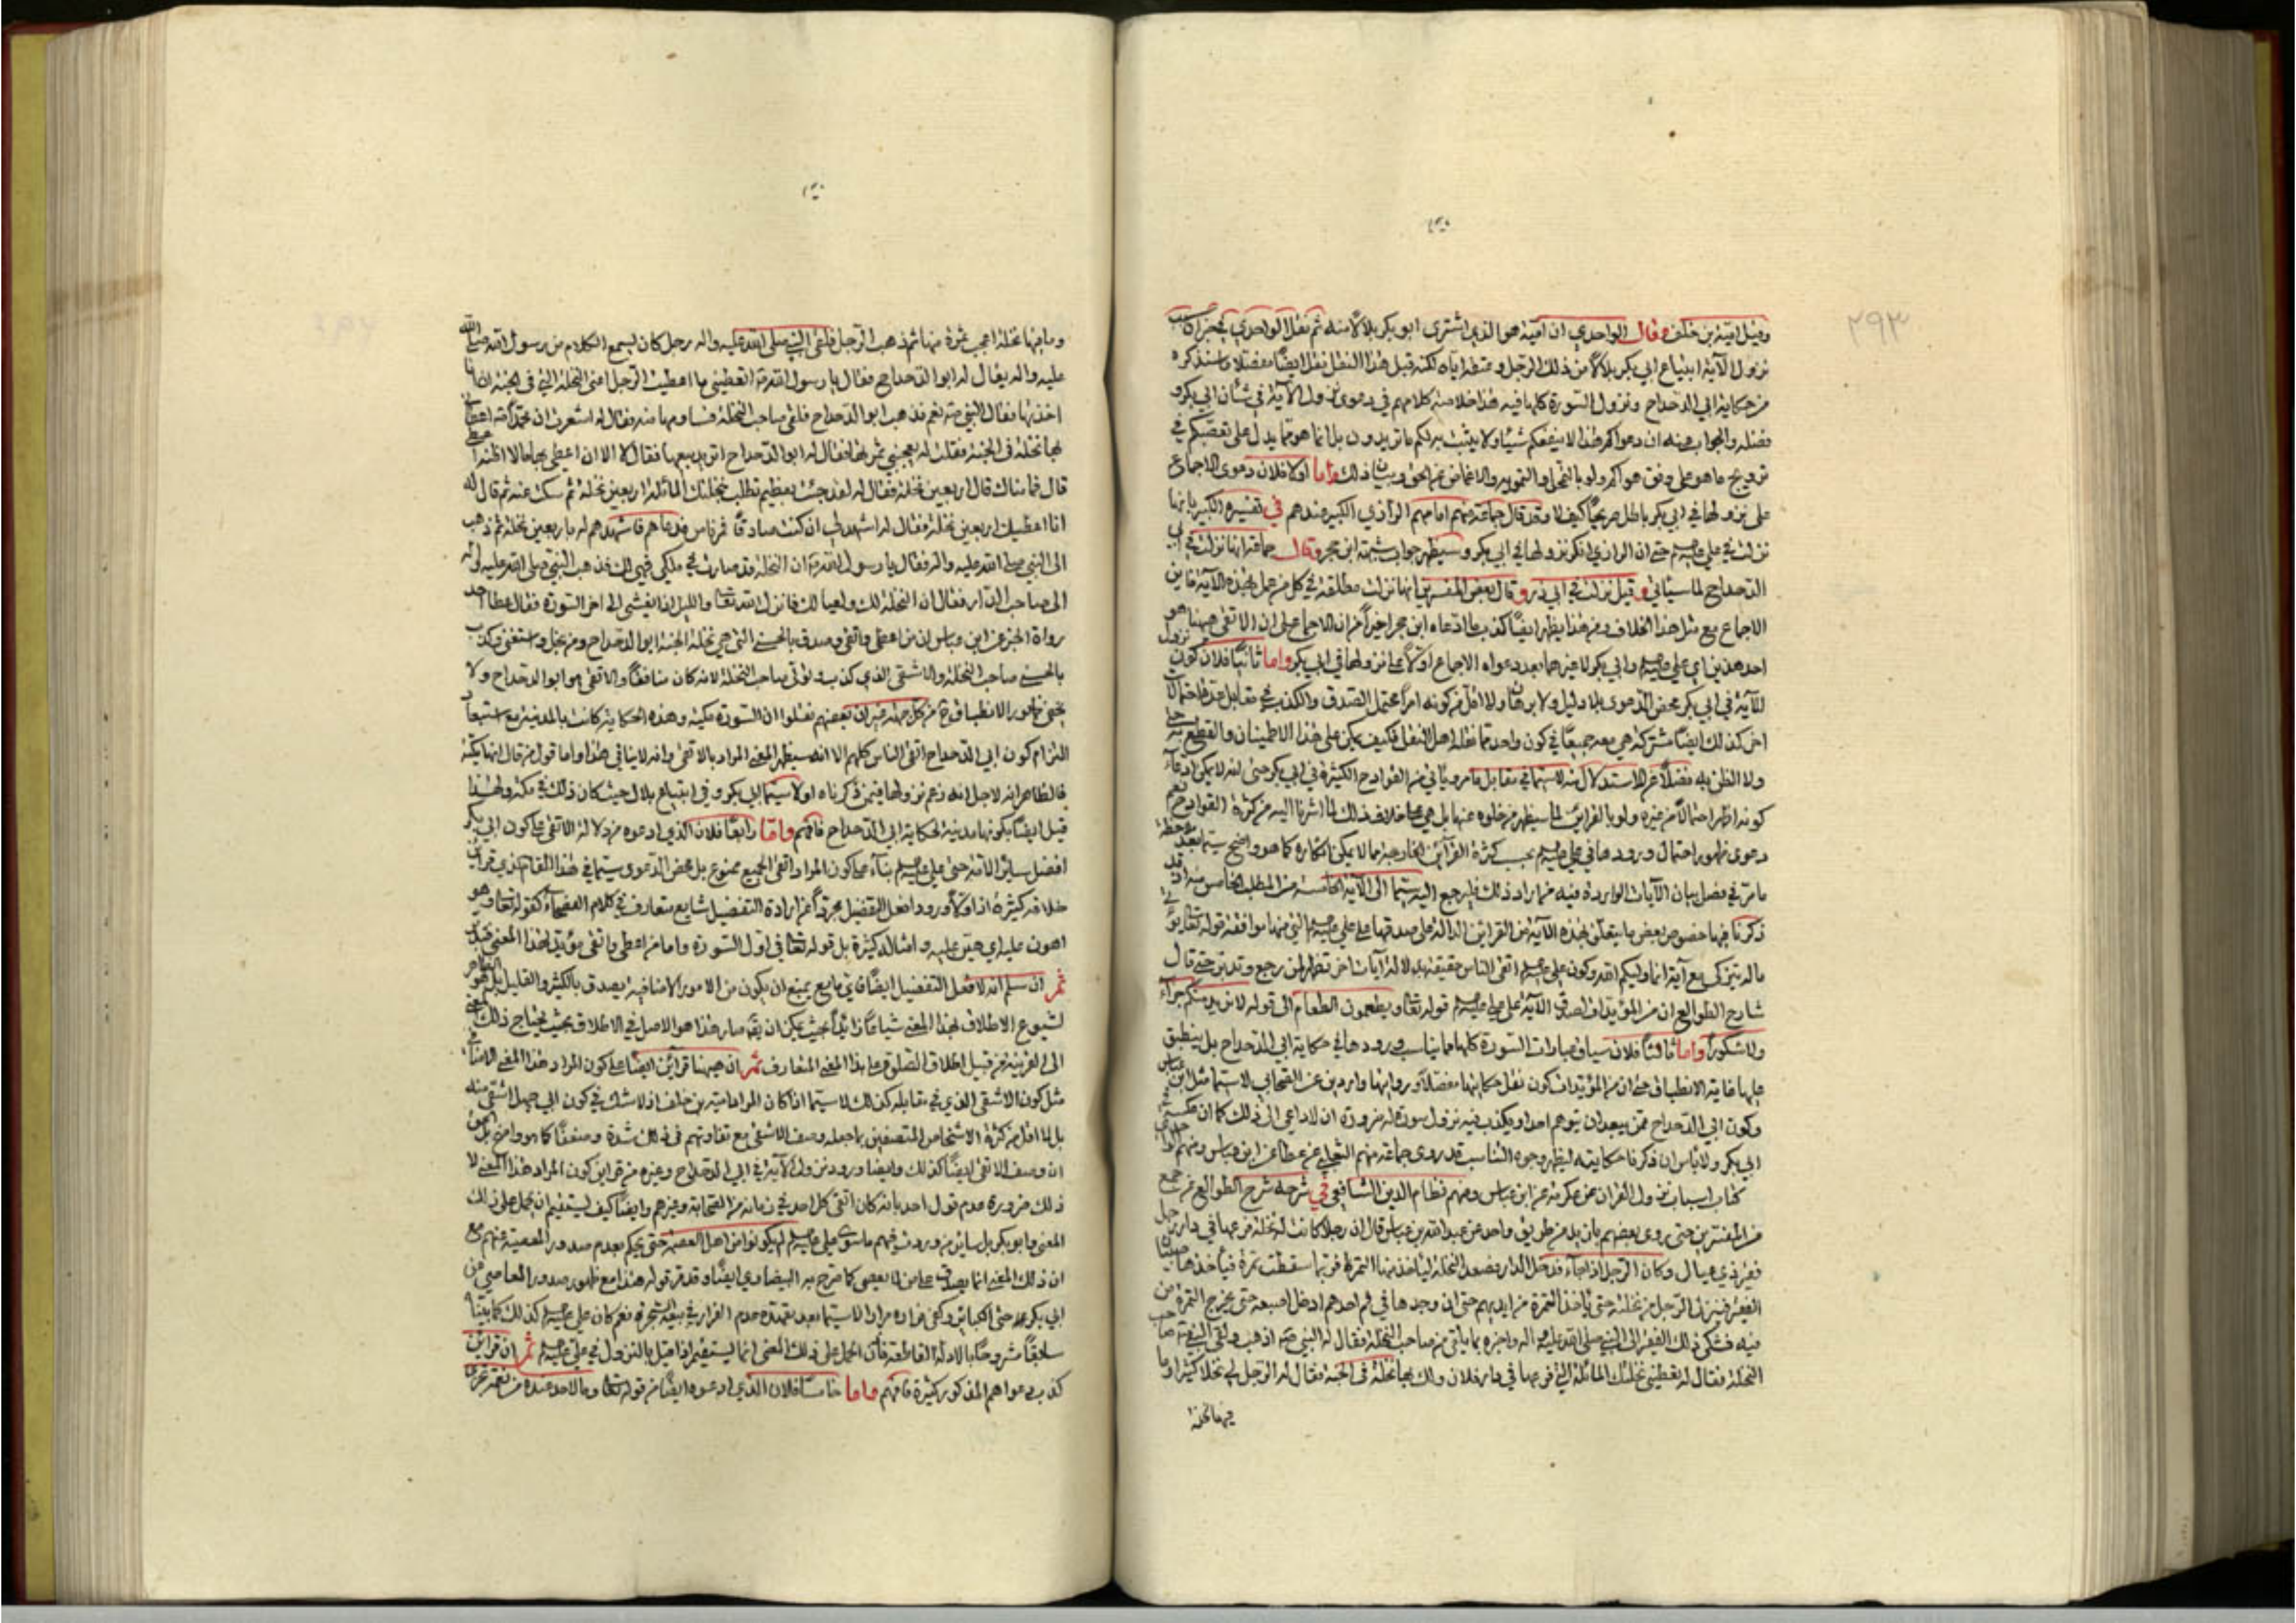 ٢٩٣
وقيل امية بن خلف وقال الواحدي ان امية هو الذي اشترى ابو بكر بلالا منه ثم نقل الواحدي في خبر ان سبب
نزول الآية ابتياع ابي بكر بلالا من ذلك الرجل وعتقه اياه لكنه قبل هذا النقل نقل ايضا مفصلا ما سنذكره
من حكاية ابي الدحداح ونزول السورة كلها فيه هذا خلاصة كلامهم في دعوى نزول الآية في شأن ابي بكر و
فضله والجواب عنه ان دعواكم هذا لا ينفعكم شيئا ولا يثبت به لكم ما تريدون بل انما هو مما يدل على تعصبكم في
ترويج ما هو على وفق هواكم ولو بالتمحل والتمويه والاغماض عن الحق وبيان ذلك واما اولا فلان دعوى الاجماع
على نزولها في ابي بكر باطل صريحا كيف لا وقد قال جماعة منهم امامهم الرازي الكبير عندهم في تفسيره الكبير بانها
نزلت في علي عليه السلام حتى ان الرازي انكر نزولها في ابي بكر وسيظهر جواب شبهة ابن حجر وقال جماعة انها نزلت في ابي
الدحداح لما سيأتي وقيل نزلت في ابي ذر وقال بعض المفسرين انها نزلت مطلقة في كل من عمل بهذه الآية فاين
الاجماع مع مثل هذا الخلاف ومن هذا يظهر ايضا كذب ما ادعاه ابن حجر اخيرا من ان الاجماع على ان الاتقى هيهنا هو
احد هذين اي علي عليه السلام وابي بكر لا غيرهما بعد دعواه الاجماع اولا على نزولها في ابي بكر واما ثانيا فلان كون نزول
الآية في ابي بكر محض الدعوى بلا دليل ولا برهان ولا اقل من كونه امرا محتمل الصدق والكذب في مقابل عدة احتمالات
اخر كذلك ايضا مشتركة هي معه جميعا في كون واحد مما نقله اهل النقل فكيف يمكن على هذا الاطمينان والقطع به
ولا الظن به فضلا عن الاستدلال منه لا سيما في مقابل ما مر ويأتي من القوادح الكثيرة في ابي بكر حتى انه لا يمكن ادعاء
كونه اظهر احتمالا من غيره ولو بالقرائن لما سيظهر من خلوه عنها بل هي على خلاف ذلك لما اشرنا اليه من كثرة القوادح نعم
دعوى ظهور احتمال ورودها في علي عليه السلام بحسب كثرة القرائن الخارجية مما لا يمكن انكاره كما هو واضح سيما بعد ملاحظة
ما مر في فصل بيان الآيات الواردة فيه فمن اراد ذلك فليرجع اليه سيما الى الآية الخامسة من المطلب الخامس منه اذ قد
ذكرنا فيها خصوص بعض ما يتعلق بهذه الآية من القرائن الدالة على صدقها على علي عليه السلام التي منها موافقة قوله تعالى يؤتي
ماله يتزكى مع آية انما وليكم الله وكون علي عليه السلام اتقى الناس حقيقة بدلالة آيات اخر تظهر لمن رجع وتدبر حتى قال
شارح الطوالع ان من المؤيدات لصدق الآية على علي عليه السلام قوله تعالى ويطعمون الطعام الى قوله لا نريد منكم جزاء
ولا شكورا واما ثالثا فلان سياق عبارات السورة كلها مما يناسب ورودها في حكاية ابي الدحداح بل ينطبق
عليها غاية الانطباق حتى ان من المؤيدات كون نقل حكايتها مفصلا وروايتها واردين عن الصحابي لا سيما مثل ابن عباس
وكون ابي الدحداح ممن يبعد ان يتوهم احد او يكذب فيه نزول سورة له ضرورة ان لا داعي الى ذلك كما ان
ابي بكر ولا بأس ان ذكرنا حكايته ليظهر وجوه التناسب قد روى جماعة منهم الثعلبي عن عطا عن ابن عباس ومنهم الواحدي في
كتاب اسباب نزول القران عن عكرمة عن ابن عباس ومنهم نظام الدين الشافعي في شرحه شرح الطوالع عن جمع
من المفسرين حتى روى بعضهم بازيد من طريق واحد عن عبدالله بن عباس قال ان رجلا كانت له نخلة فرعها في دار رجل
فقير ذي عيال وكان الرجل اذا جاء فدخل الدار فصعد النخلة ليأخذ منها التمر فربما سقطت تمرة فيأخذها صبيان
الفقير فينزل الرجل من نخلته حتى يأخذ التمرة من ايديهم حتى ان وجدها في فم احدهم ادخل اصبعه حتى يخرج التمرة من
فيه فشكى ذلك الفقير الى النبي صلى الله عليه واله واخبره بما يلقى من صاحب النخلة فقال له النبي اذهب ولقى النبي صاحب
النخلة فقال له تعطيني نخلتك المائلة التي فرعها في دار فلان ولك بها نخلة في الجنة فقال له الرجل لي نخلا كثيرا وما
فيها نخلة
وما فيها نخلة اعجب تمرة منها ثم ذهب الرجل فلقى النبي صلى الله عليه واله رجل كان يسمع الكلام من رسول الله صلى الله
عليه واله يقال له ابو الدحداح فقال يا رسول الله اتعطيني ما اعطيت الرجل اعني النخلة التي في الجنة ان انا
اخذتها فقال النبي نعم فذهب ابو الدحداح فلقى صاحب النخلة فساومها منه فقال له اشعرت ان محمدا اعطاني
بها نخلة في الجنة فقلت له يعجبني تمرها فقال له ابو الدحداح اتريد بيعها فقال لا الا ان اعطى بها ما لا اظنه اعطى
قال فما مناك قال اربعين نخلة فقال له لقد جئت بعظيم تطلب بنخلتك المائلة اربعين نخلة ثم سكت عنه ثم قال له
انا اعطيك اربعين نخلة فقال له اشهد لي ان كنت صادقا فمر ناس فدعاهم فاشهدهم له باربعين نخلة ثم ذهب
الى النبي صلى الله عليه واله فقال يا رسول الله ان النخلة قد صارت في ملكي فهي لك فذهب النبي صلى الله عليه واله
الى صاحب الدار فقال ان النخلة لك ولعيالك فانزل الله تعالى والليل اذا يغشى الى اخر السورة فقال عطا احد
رواة الخبر عن ابن عباس ان من اعطى واتقى وصدق بالحسنى التي هي نخلة الجنة ابو الدحداح ومن بخل واستغنى وكذب
بالحسنى صاحب النخلة والاشقى الذي كذب وتولى صاحب النخلة لانه كان منافقا والاتقى هو ابو الدحداح ولا
يخفى ظهور الانطباق من كل جهة غير ان بعضهم نقلوا ان السورة مكية وهذه الحكاية كانت بالمدينة مع استبعاد
التزام كون ابي الدحداح اتقى الناس كلهم الا انه سيظهر المعنى المراد بالاتقى وانه لا ينافي هذا واما قول من قال انها مكية
فالظاهر انه لاجل انه زعم نزولها فيمن ذكرناه اولا سيما ابي بكر وفي ابتياع بلال حيث كان ذلك في مكة ولهذا
قيل ايضا بكونها مدنية لحكاية ابي الدحداح فافهم واما رابعا فلان الذي ادعوه من دلالة الاتقى على كون ابي بكر
افضل سائر الامة حتى علي عليه السلام بناء على كون المراد اتقى الجميع ممنوع بل محض الدعوى سيما في هذا المقام الذي قرائن
خلافه كثيرة اذ اولا ورود افعل التفضيل مجردا عن ارادة التفضيل شايع متعارف في كلام الفصحاء كقوله تعالى وهو
اهون عليه اي هين عليه وامثاله كثيرة بل قوله تعالى في اول السورة واما من اعطى واتقى مؤيد لهذا المعنى
ثم ان سلم انه لافعل التفضيل ايضا فاي مانع يمنع ان يكون من الامور الاضافية يصدق بالكثير والقليل بل هو الظاهر
لشيوع الاطلاق بهذا المعنى شياعا زائدا بحيث يمكن ان يقال صار هذا هو الاصل في الاطلاق بحيث يحتاج ذلك المعنى
الى القرينة من قبيل اطلاق الصلوة على هذا المعنى المتعارف ثم ان هيهنا قرائن ايضا على كون المراد هذا المعنى
مثل كون الاشقى الذي في مقابله كذلك لا سيما اذا كان المراد امية بن خلف اذ لا شك في كون ابي جهل اشقى منه
بل لا اقل من كثرة الاشخاص المتصفين بما جعله وصف الاشقى مع تفاوتهم في ذلك شدة وضعفا كما هو واضح بل الحق
ان وصف الاتقى ايضا كذلك وايضا ورود نزول الآية في ابي الدحداح وغيره من قرائن كون المراد هذا المعنى لا
ذلك ضرورة عدم قول احد بانه كان اتقى كل احد في زمانه من الصحابة وغيرهم وايضا كيف يستقيم ان يحمل على ذلك
المعنى وابو بكر بل سائر من وردت فيهم ما سوى علي عليه السلام لم يكونوا من اهل العصمة حتى يحكم بعدم صدور المعصية عنهم مع
ان ذلك المعنى انما يصدق على من لا يعصي كما صرح به البيضاوي ايضا وقد مر قوله هذا مع ظهور صدور المعاصي من
ابي بكر عمدا حتى الكبائر وكفى فراره مرارا لا سيما بعد تعهده عدم الفرار في بيعة الشجرة نعم كان علي عليه السلام كذلك كما بيناه
سابقا مشروحا بالادلة القاطعة فاذا الحمل على ذلك المعنى انما يستقيم اذا قيل بالنزول في علي عليه السلام ثم ان قرائن
كذب دعواهم المذكور كثيرة فافهم واما خامسا فلان الذي ادعوه ايضا من قوله تعالى وما لاحد عنده من نعمة تجزى